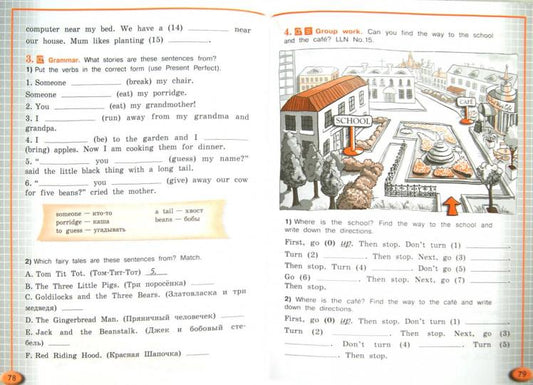 computer near my bed. We have a (14) ________ near
our house. Mum likes planting (15) ________.
3. Grammar. What stories are these sentences from?
1) Put the verbs in the correct form (use Present Perfect).
1. Someone ________ (break) my chair.
Someone ________ (eat) my porridge.
2. You ________ (eat) my grandmother!
3. I ________ (run) away from my grandma and
grandpa.
4. I ________ (be) to the garden and I ________
(bring) apples. Now I am cooking them for dinner.
5. “________ you ________ (guess) my name?”
said the little black thing with a long tail.
6. “________ you ________ (give) away our cow
for five beans?” cried the mother.
someone — кто-то
porridge — каша
to guess — угадывать
a tail — хвост
beans — бобы
2) Which fairy tales are these sentences from? Match.
A. Tom Tit Tot. (Том-Тит-Тот) 5
B. The Three Little Pigs. (Три поросёнка) ____
C. Goldilocks and the Three Bears. (Златовласка и три
медведя) ____
D. The Gingerbread Man. (Пряничный человечек) ____
E. Jack and the Beanstalk. (Джек и бобовый сте-
бель) ____
F. Red Riding Hood. (Красная Шапочка) ____
78
4. Group work. Can you find the way to the school
and the café? LLN No.15.
CAFÉ
SCHOOL
1) Where is the school? Find the way to the school and
write down the directions.
First, go (0) up. Then stop. Don't turn (1) ________.
Turn (2) ________. Then stop. Next, go (3) ________.
Then stop. Turn (4) ________. Don't go (5) ________.
Go (6) ________. Then stop. Next, go (7) ________.
Then stop.
2) Where is the café? Find the way to the café and write
down the directions.
First, go (0) up. Then stop. Don't turn (1) ________.
Turn (2) ________. Then stop. Next, go (3)
________. Then stop. Don't turn (4) ________. Turn (5)
________. Then stop.
79